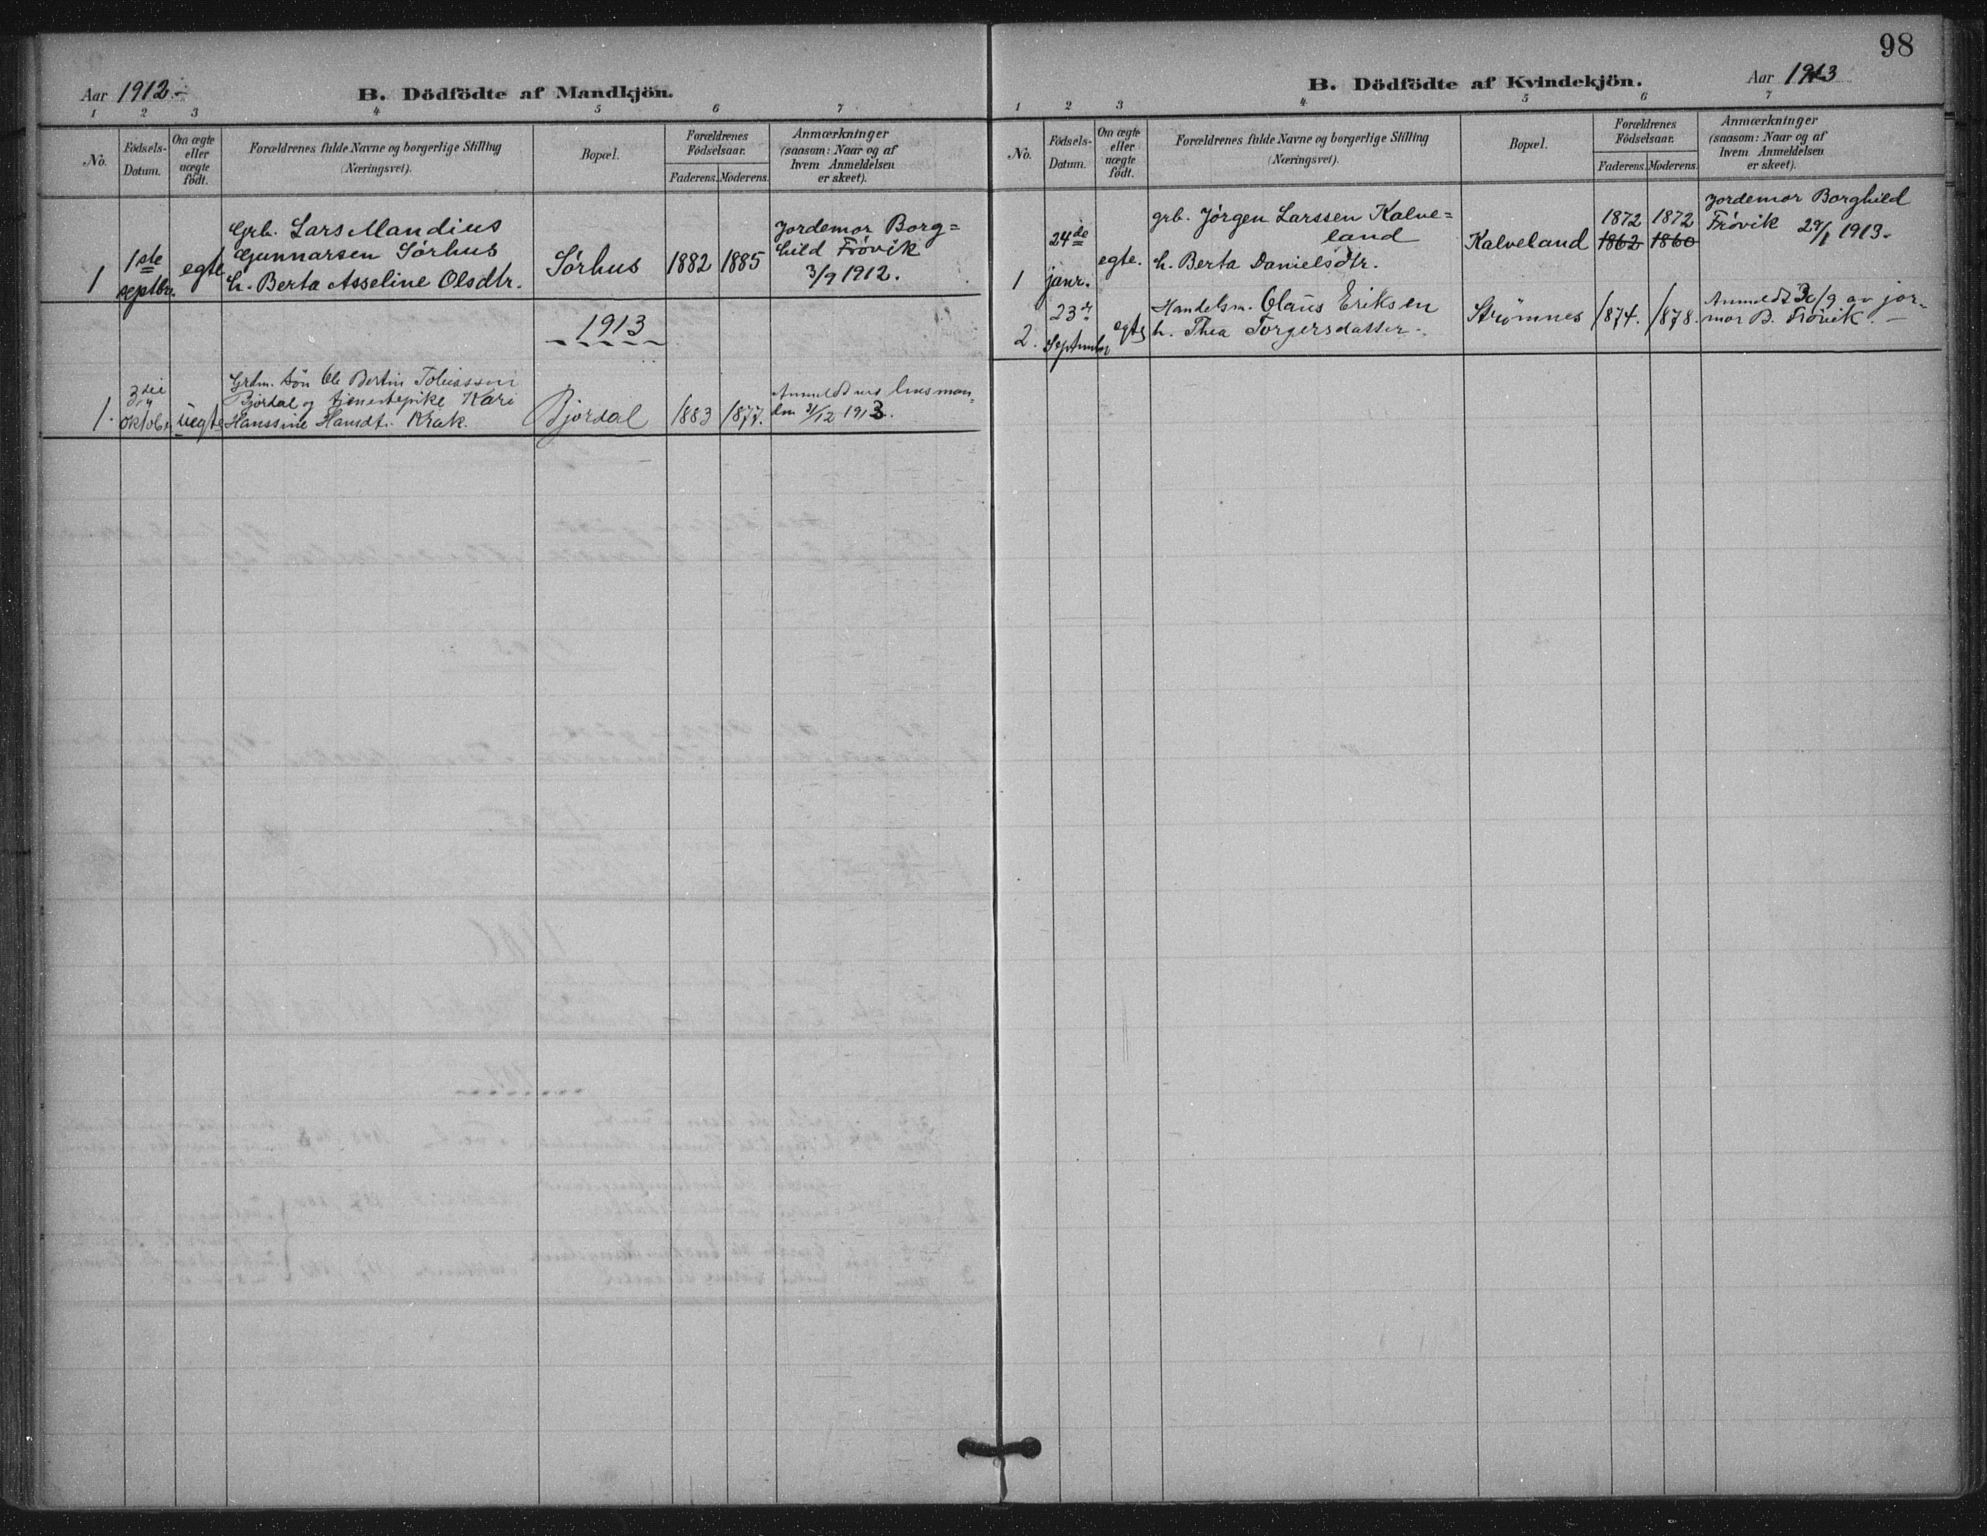 Aar 1912.-
B. Dödfödte af Mandkjön.
1 2 3 4 5 6 7
No.
Födsels-
Datum.
Om ægte
eller
uægte
födt.
Forældrenes fulde Navne og borgerlige Stilling
(Næringsvei).
Bopæl.
Forældrenes
Födselsaar.
Faderens. Moderens.
Anmærkninger
(saasom: Naar og af
hvem Anmeldelsen
er skeet).
1
1ste
septbr.
egte
Grb. Lars Mandius
Gunnarsen Sørhus
h. Berta Asseline Olsdtr.
Sørhus
1882 1885
Jordemor Borg=
hild Frøvik
3/9 1912.
1913
1.
3die
oktob.
uegte
Grdm. søn Ole Bertin Tobiassen
Bjørdal og tjenestepike Kari
Hanssine Hansdt. Krak.
Bjørdal
1883 1877.
Anmeldt
den 31/12 1913.
98
Aar 1913
B. Dödfödte af Kvindekjön.
1 2 3 4 5 6 7
No.
Födsels-
Datum.
Om ægte
eller
uægte
födt.
Forældrenes fulde Navne og borgerlige Stilling
(Næringsvei).
Bopæl.
Forældrenes
Födselsaar.
Faderens. Moderens.
Anmærkninger
(saasom: Naar og af
hvem Anmeldelsen
er skeet).
1
24de
janr.
egte.
grb. Jørgen Larssen Kalve=
land
h. Berta Danielsdtr.
Kalveland
1872 1872
1862 1860
Jordemor Borghild
Frøvik 29/1 1913.
2.
23de
September
egte
Handelsm. Olaus Eriksen
h. Thea Torgersdatter.
Strømnes
1874. 1878.
Anmeldt 30/9 av jor-
mor B. Frøvik.